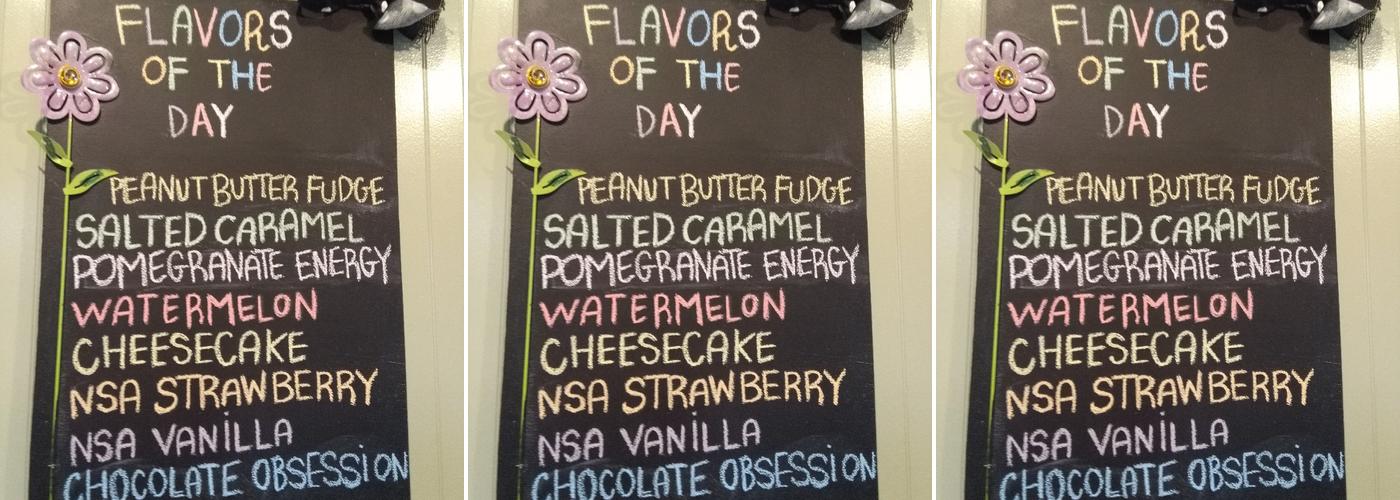 FLAVORS
OF THE
DAY
PEANUT BUTTER FUDGE
SALTED CARAMEL
POMEGRANATE ENERGY
WATERMELON
CHEESECAKE
NSA STRAWBERRY
NSA VANILLA
CHOCOLATE OBSESSION
FLAVORS
OF THE
DAY
PEANUT BUTTER FUDGE
SALTED CARAMEL
POMEGRANATE ENERGY
WATERMELON
CHEESECAKE
NSA STRAWBERRY
NSA VANILLA
CHOCOLATE OBSESSION
FLAVORS
OF THE
DAY
PEANUT BUTTER FUDGE
SALTED CARAMEL
POMEGRANATE ENERGY
WATERMELON
CHEESECAKE
NSA STRAWBERRY
NSA VANILLA
CHOCOLATE OBSESSION